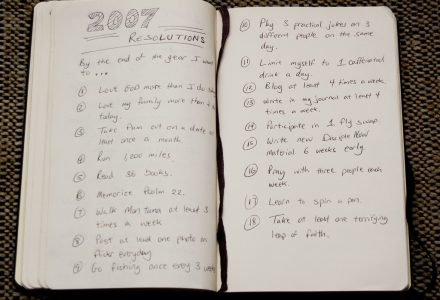 2007
RESOLUTIONS
By the end of the year I want
to ...
① Love GOD more than I do
② Love my family more than
today.
③ Take Pam out on a date
that once a month.
④ Run 1,200 miles.
⑤ Read 36 books.
⑥ Memorize Psalm 22.
⑦ Walk Montana at least 3
times a week
⑧ Post at least one photo on
flickr everyday
⑨ Go fishing once every 3 weeks
⑩ Play 3 practical jokes on 3
different people on the same
day.
⑪ Limit myself to 1 caffeinated
drink a day.
⑫ Blog at least 4 times a week.
⑬ Write in my journal at least 4
times a week.
⑭ Participate in 1 fly swap.
⑮ Write new
material 6 weeks early.
⑯ Pray with three people each
week.
⑰ Learn to spin a pen.
⑱ Take at least one terrifying
leap of faith.